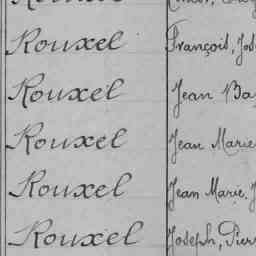 Rouxel François, Jos
Rouxel Jean Ba
Rouxel Jean Marie
Rouxel Jean Marie, J
Rouxel Joseph, Pier